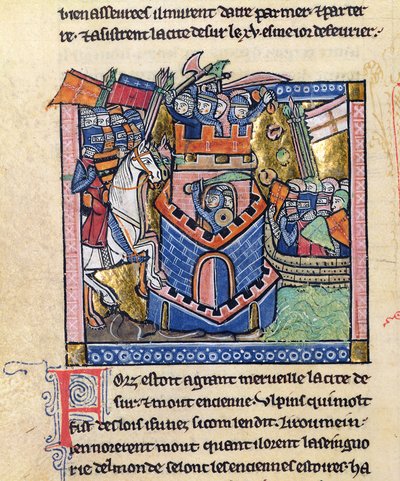 bien asseurees il murent daire par mer ⁊ par ter
re ⁊ asistrent la cite de sur le xv. esme ior de fevrier.
Forz estoit a grant merveille la cite de
sur ⁊ mout encienne. Vlpins qui molt
fist des lois i fu nez si com len dit. Li roumein
ennorerent mout quant il orent la seingno
rie del monde selonc les enciennes estoires. ha